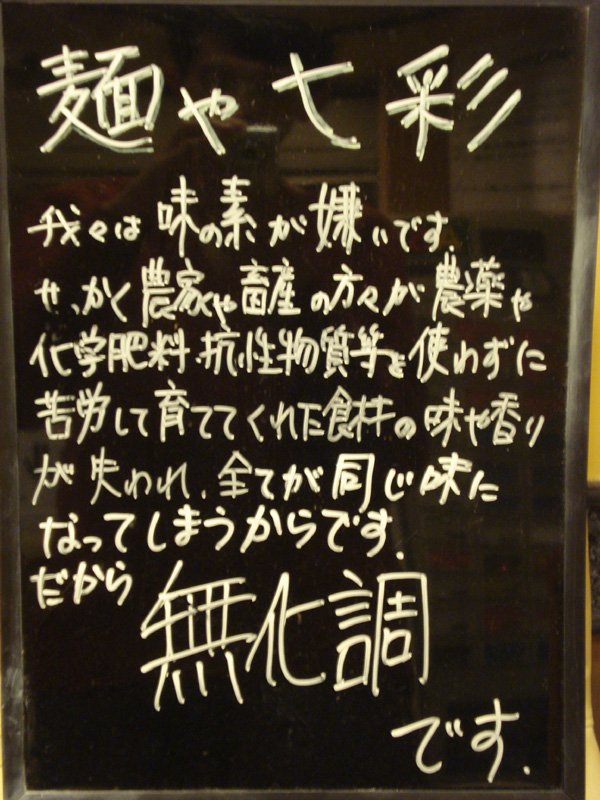 麺や七彩
我々は味の素が嫌いです.
せっかく農家や畜産の方々が農薬や
化学肥料、抗性物質等を使わずに
苦労して育ててくれた食材の味や香り
が失われ、全てが同じ味に
なってしまうからです.
だから
無化調
です.